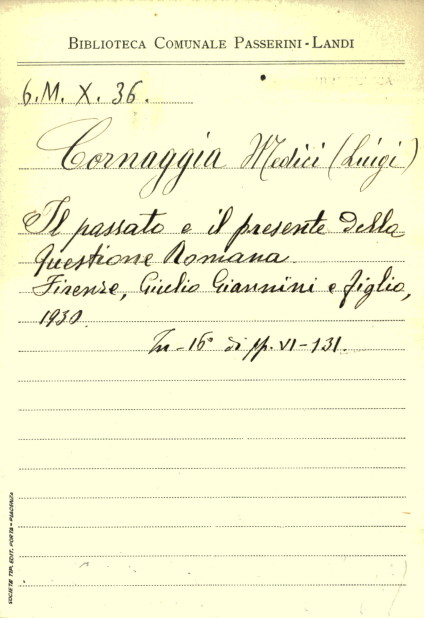 BIBLIOTECA COMUNALE PASSERINI-LANDI
6.M. X. 36.
Cornaggia Medici (Luigi)
Il passato e il presente della
Questione Romana.
Firenze, Giulio Giannini e figlio,
1930.
In-16° di pp. VI-131.
SOCIETÀ TIP. EDIT. PORTA - PIACENZA